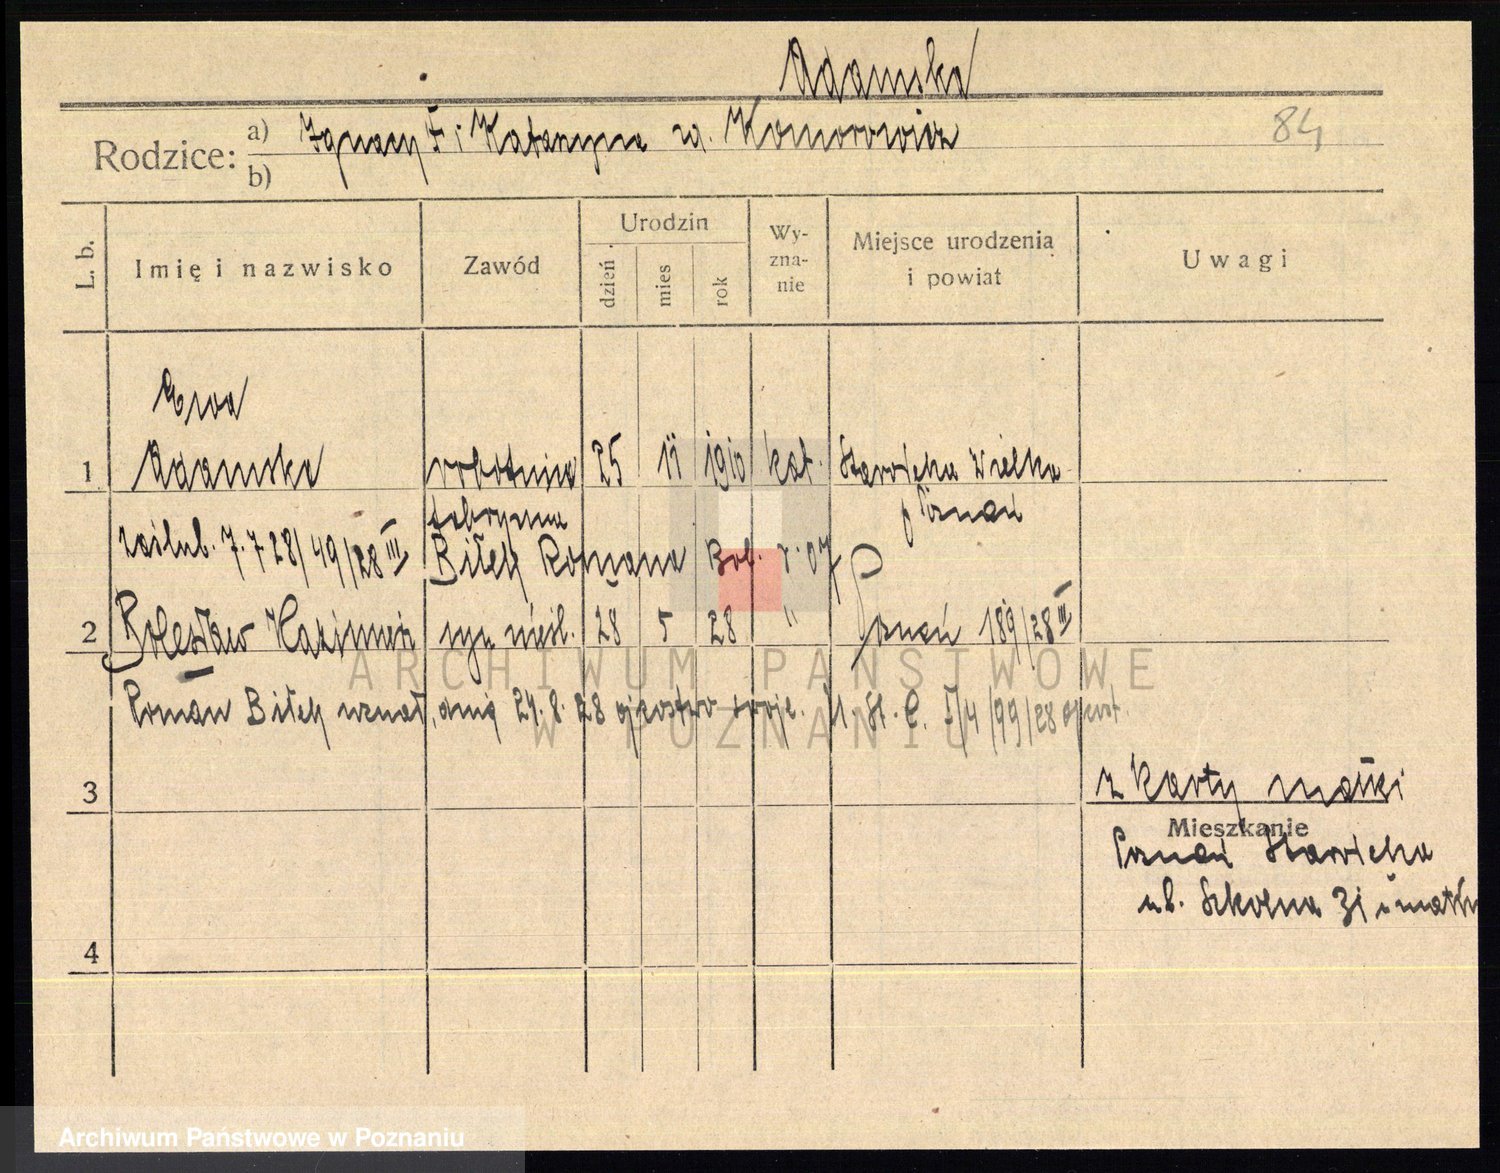 Adamska
84
Rodzice: a) Ignacy F i Katarzyna zd. Komorowicz
b)
L. b. Imię i nazwisko Zawód Urodzin dzień mies rok Wy-zna-nie Miejsce urodzenia i powiat Uwagi
Ewa
1 Adamska robotnica 25 11 1910 kat. Starołęka Wielka
fabryczna p Poznań
zaślub. 7.7.28/49/28 III Bitek Romana Bol. r. 07
2 Bolesław Kazimierz syn nieśl. 28 5 28 " Poznań 189/28 III
Roman Bitek uznał dnia 24.8.28 ojcostwo swoje. U. St. C. I/4/99/28
3 z karty matki
Mieszkanie
Poznań Starołęka
ul. Szkolna 31 u matki
4
ARCHIWUM PAŃSTWOWE
W POZNANIU
Archiwum Państwowe w Poznaniu